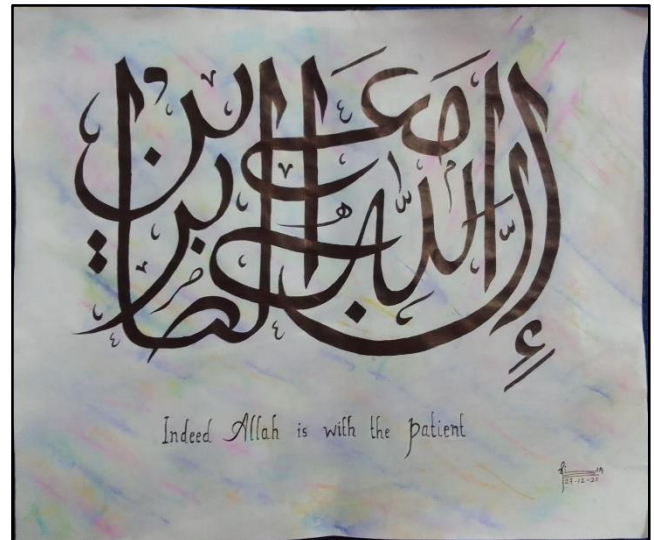 إِنَّ اللَّهَ مَعَ الصَّابِرِينَ
Indeed Allah is with the patient
23-12-21